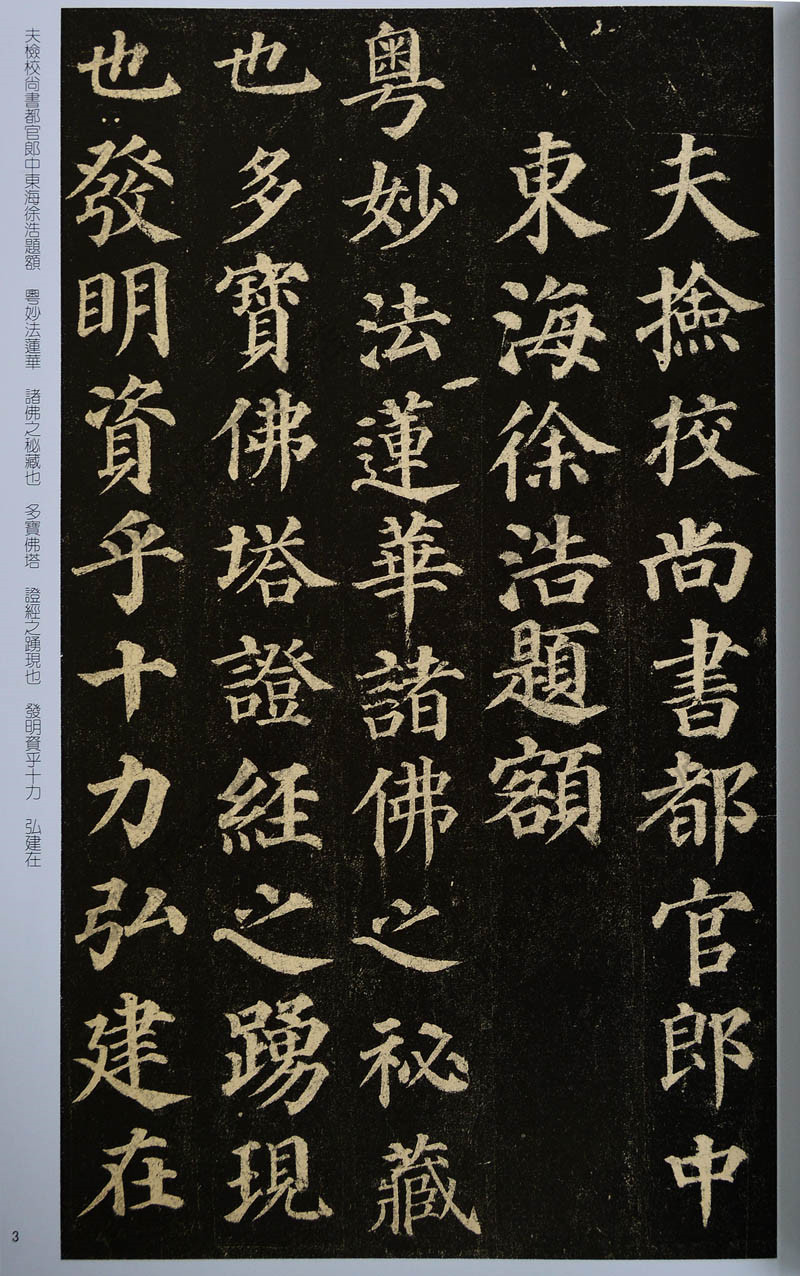 夫撿挍尚書都官郎中
東海徐浩題額
粵妙法蓮華諸佛之祕藏
也多寶佛塔證經之踴現
也發明資乎十力弘建在
夫檢校尚書都官郎中東海徐浩題額 粵妙法蓮華 諸佛之秘藏也 多寶佛塔 證經之踴現也 發明資乎十力 弘建在
3